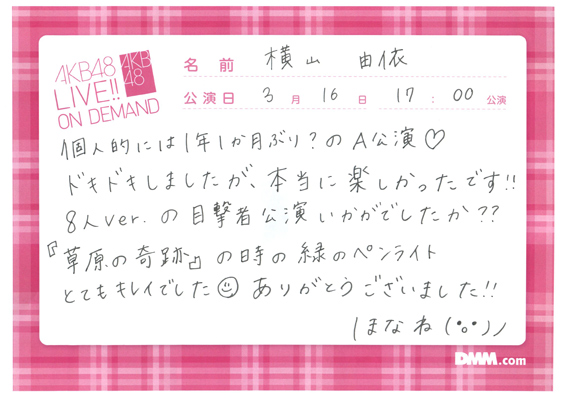 AKB48
LIVE!!
ON DEMAND
AKB
48
名前 横山 由依
公演日 3月16日 17:00公演
個人的には1年1か月ぶり?のA公演♡
ドキドキしましたが、本当に楽しかったです!!
8人ver.の目撃者公演いかがでしたか??
『草原の奇跡』の時の緑のペンライト
とてもキレイでした☺ ありがとうございました!!
ほなね(°o°)ノ
DMM.com